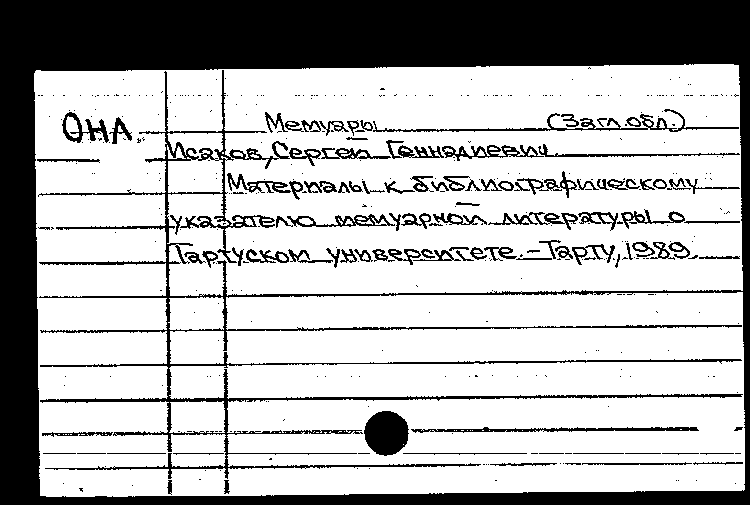 ОНЛ. Мемуары (Загл.обл.)
Исаков, Сергей Геннадиевич
Материалы к библиографическому
указателю мемуарной литературы о
Тартуском университете. – Тарту, 1989.